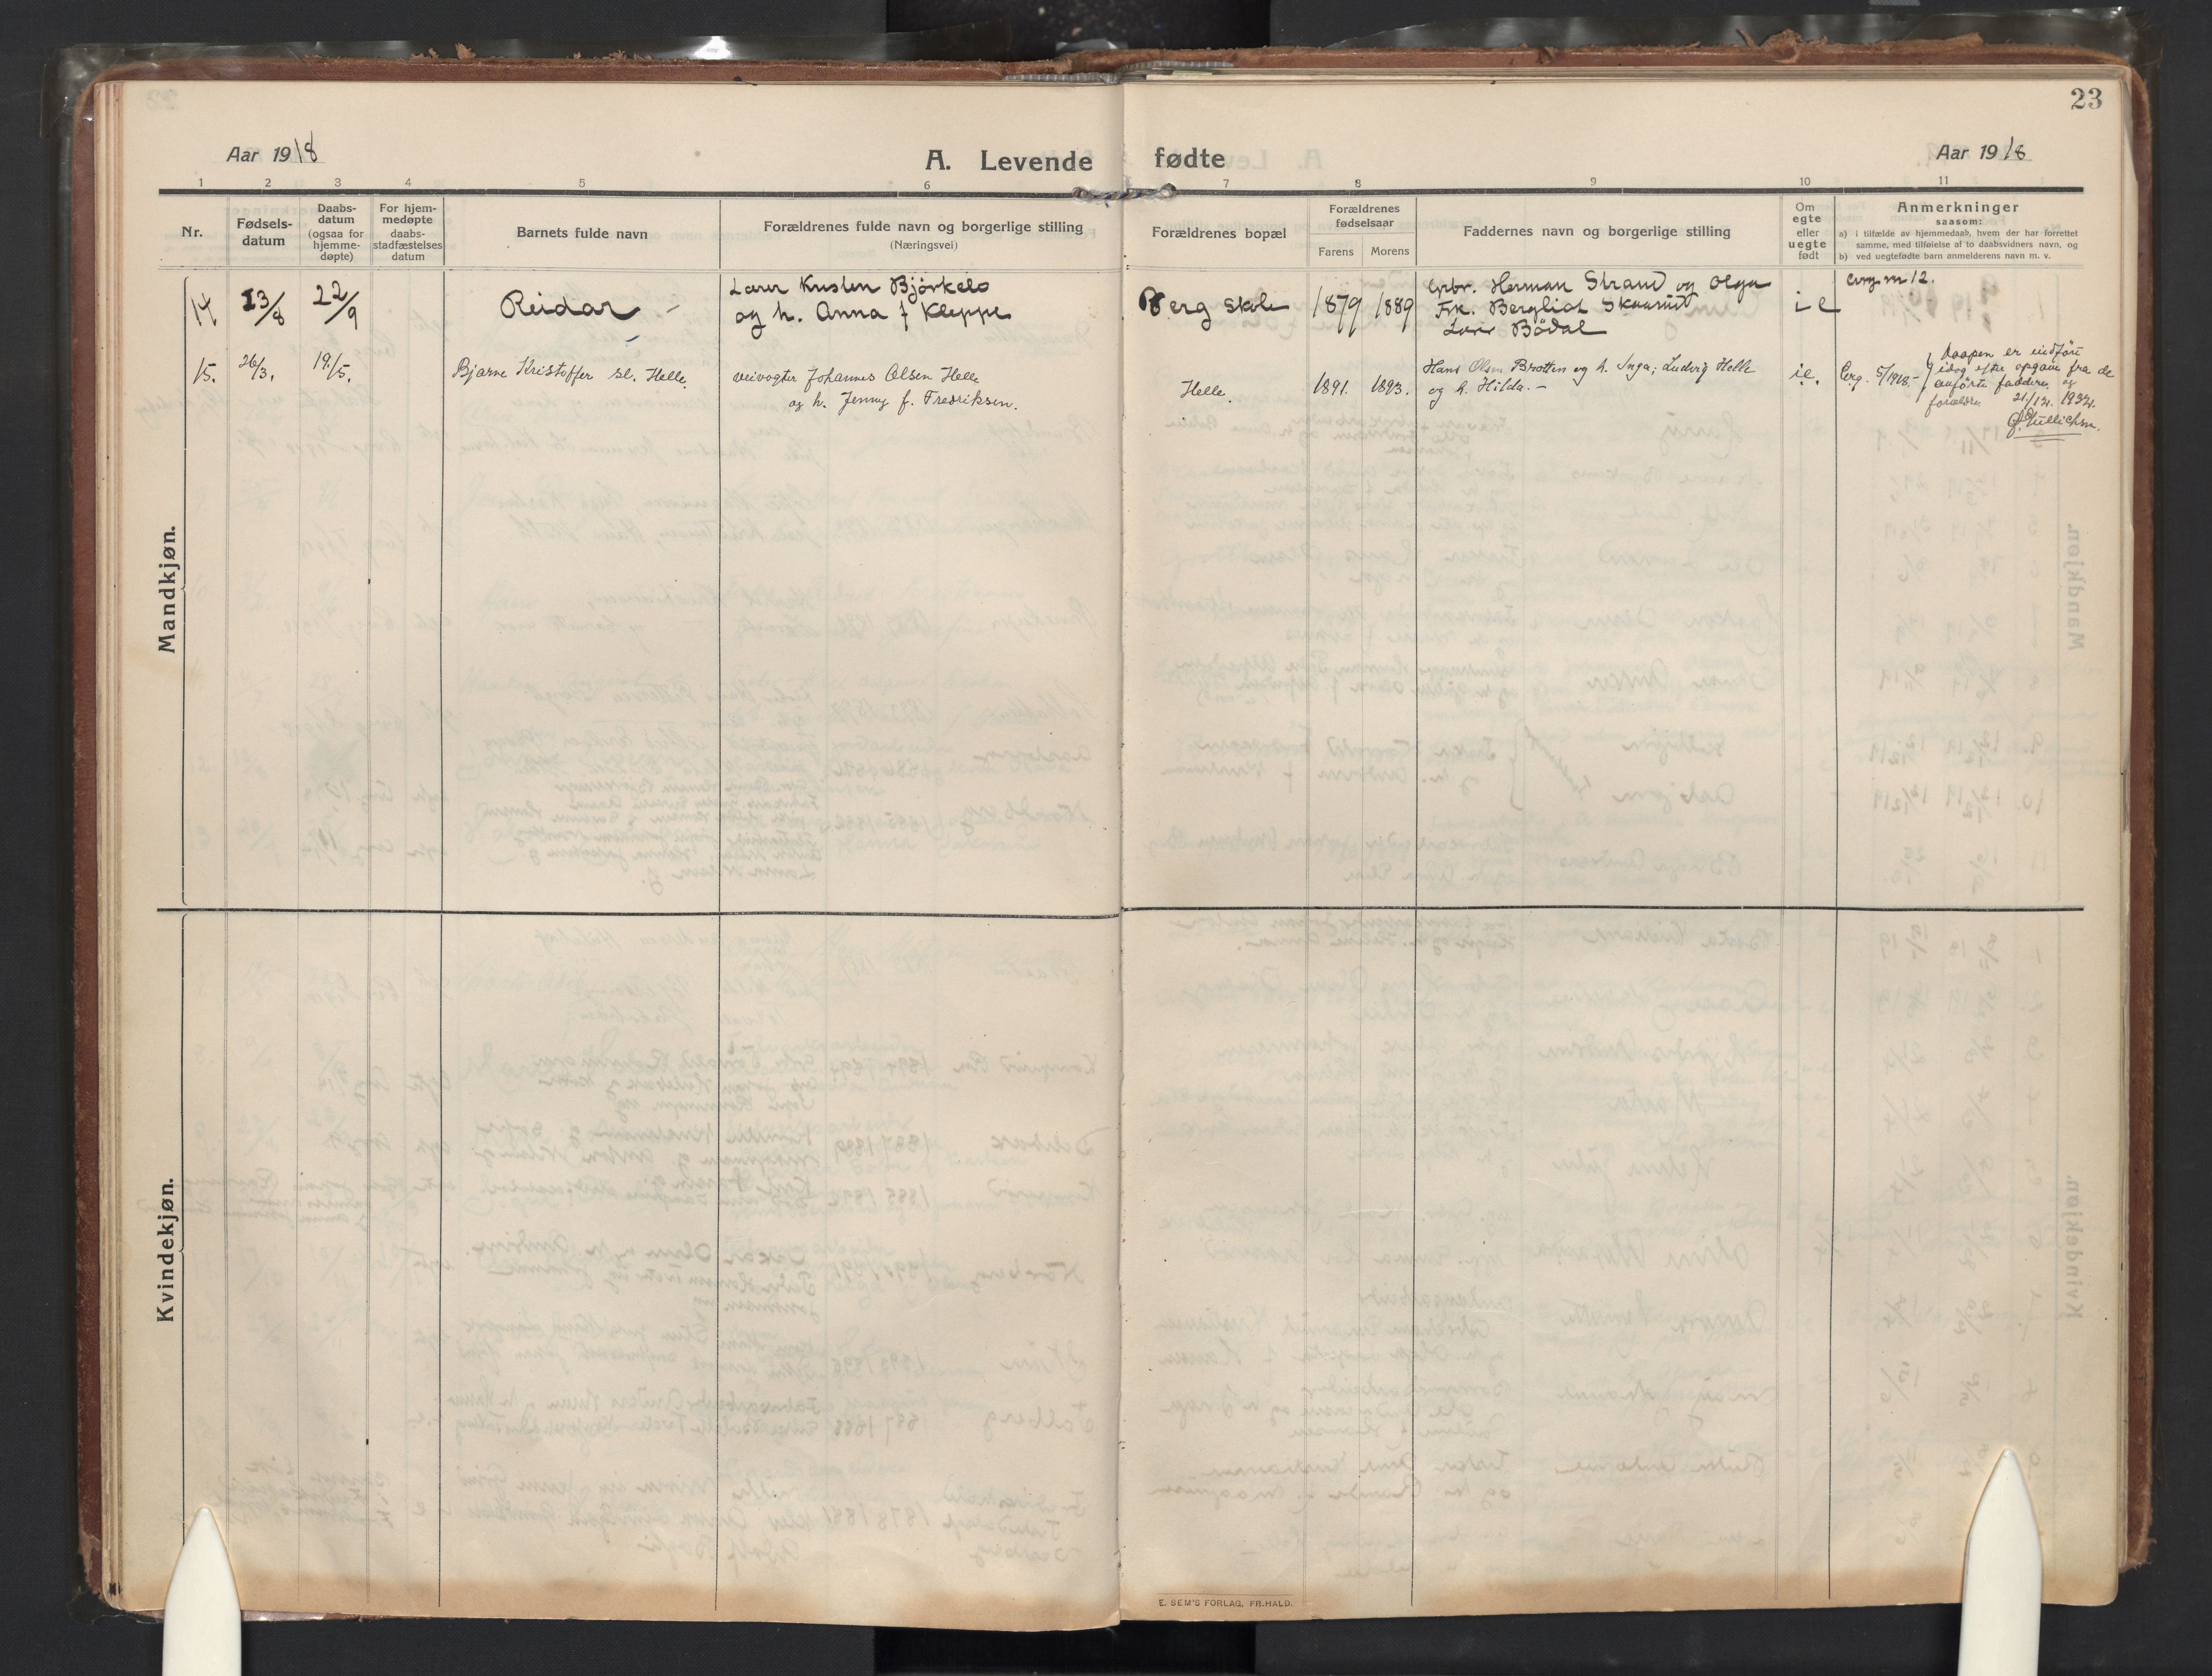 23
Aar 1918
A. Levende fødte
Aar 1918
1 2 3 4 5 6 7 8 9 10 11
Nr.
Fødsels-
datum
Daabs-
datum
(ogsaa for
hjemme-
døpte)
For hjem-
medøpte
daabs-
stadfæstelses
datum
Barnets fulde navn
Forældrenes fulde navn og borgerlige stilling
(Næringsvei)
Forældrenes bopæl
Forældrenes
fødselsaar
Farens Morens
Faddernes navn og borgerlige stilling
Om
egte
eller
uegte
født
Anmerkninger
saasom:
a) i tilfælde av hjemmedaab, hvem der har forrettet
samme, med tilføielse af to daabsvidners navn, og
b) ved uegtefødte barn anmelderens navn m. v.
Mandkjøn.
14 23/8 22/9 Reidar -
Lærer Kristen Björkelo
og h. Anna f Kleppe
Berg skole 1879 1889
Grbr. Herman Strand og Olga
Frk. Bergliot Skaarud
Bödal
i e
m 12.
15. 26/3. 19/5. Bjarne Kristoffer sl. Helle.
veivogter Johannes Olsen Helle
og h. Jenny f. Fredriksen.
Helle. 1891. 1893.
Hans Olsen Braatten og h. Inga; Ludvig Helle
og h. Hilda. -
i.e.
5/1918.-
Daapen er indfört
idag efter opgave fra de
anförte faddere og
forældre. 21/12. 1932.
Kvindekjøn.
E. SEM'S FORLAG, FR.HALD.